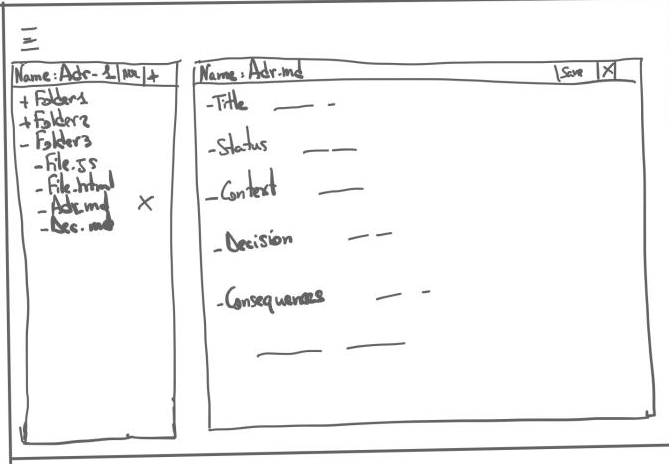 Name: Adr-1 ADR +
+ Folder1
+ Folder2
- Folder3
- File.js
- File.html
- Adr.md X
- Dec.md
Name: Adr.md Save X
- Title
- Status
- Context
- Decision
- Consequences